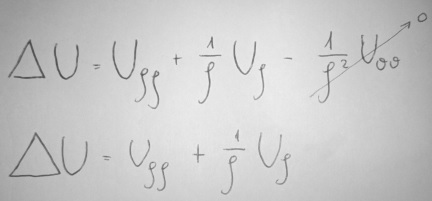 ΔU = Uρρ + 1/ρ Uρ - 1/ρ² Uθθ → 0
ΔU = Uρρ + 1/ρ Uρ